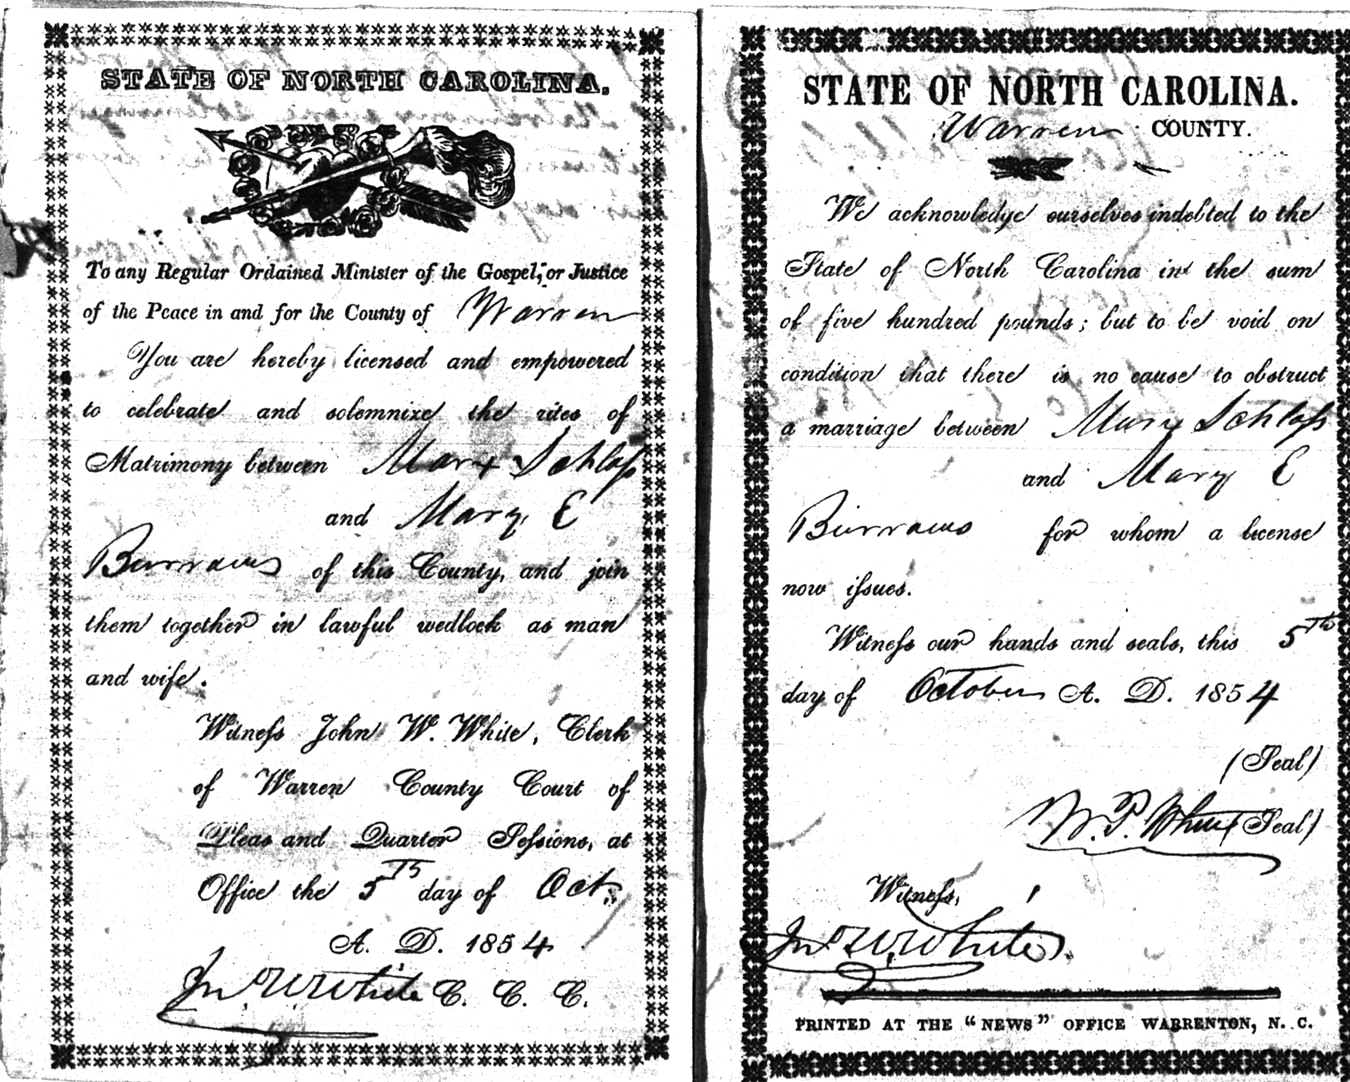 STATE OF NORTH CAROLINA.
To any Regular Ordained Minister of the Gospel, or Justice
of the Peace in and for the County of Warren
You are hereby licensed and empowered
to celebrate and solemnize the rites of
Matrimony between Marx Schloss
and Mary E
Burrows of this County, and join
them together in lawful wedlock as man
and wife.
Witness John W. White, Clerk
of Warren County Court of
Pleas and Quarter Sessions, at
Office the 5th day of Oct.
A. D. 1854
Jno W White C. C. C.
STATE OF NORTH CAROLINA.
Warren COUNTY.
We acknowledge ourselves indebted to the
State of North Carolina in the sum
of five hundred pounds; but to be void on
condition that there is no cause to obstruct
a marriage between Marx Schloss
and Mary E
Burrows for whom a license
now issues.
Witness our hands and seals, this 5th
day of October A. D. 1854
(Seal)
W. P. White (Seal)
Witness,
Jno W. White.
PRINTED AT THE "NEWS" OFFICE WARRENTON, N. C.